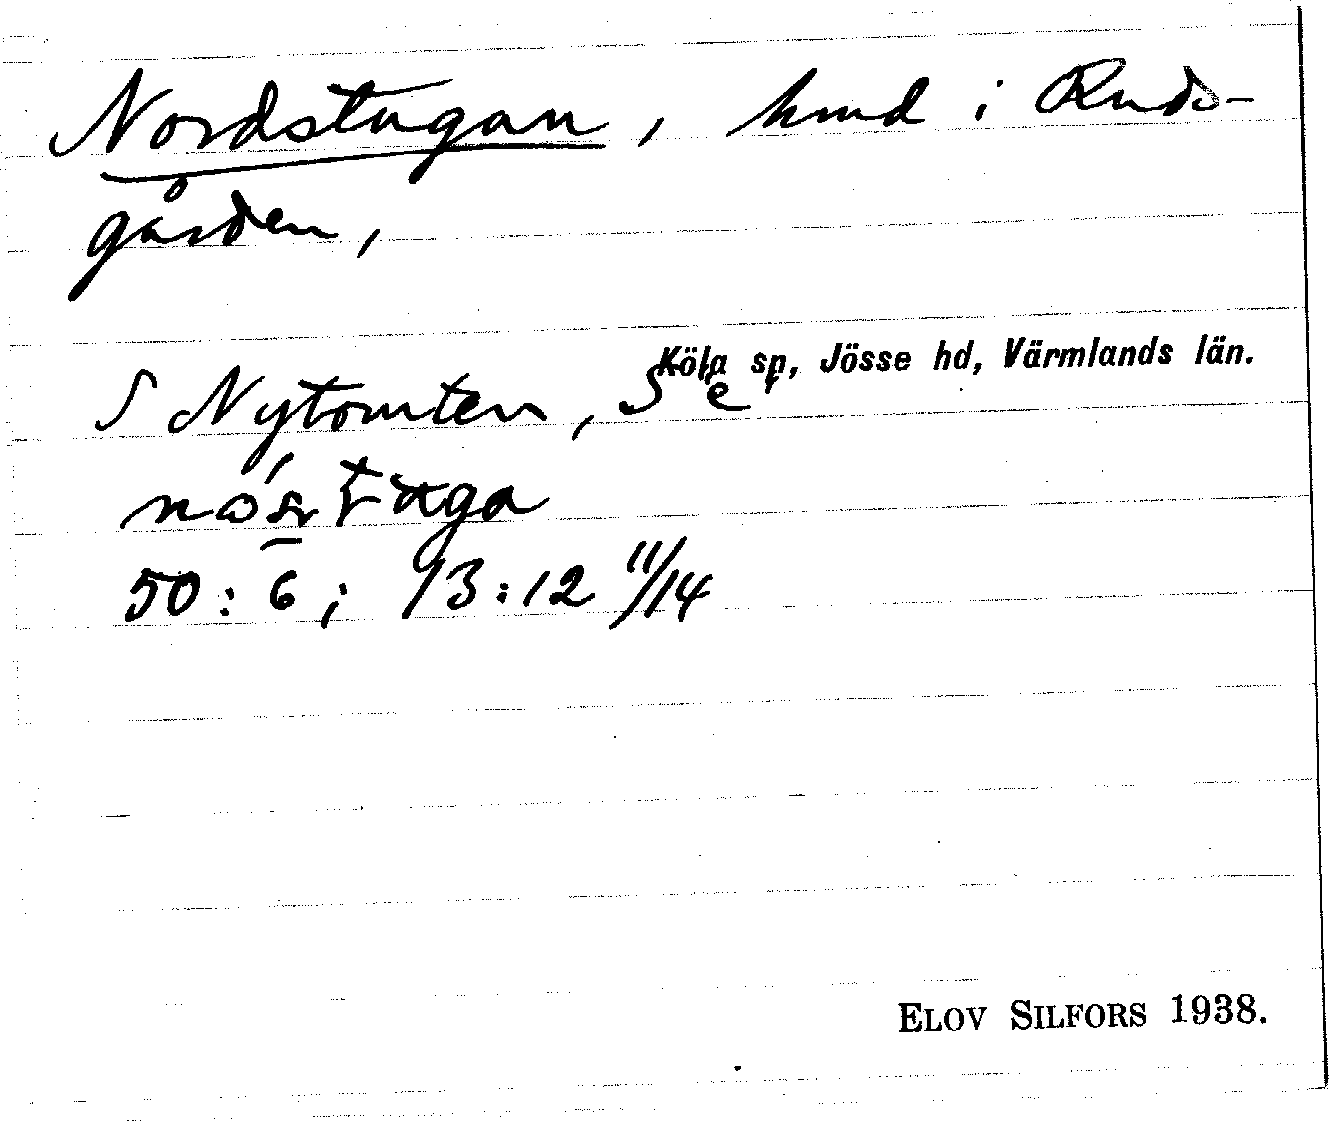 Nordstugan, hmd i Ruds-
gården,
Köla sp, Jösse hd, Värmlands län.
S Nytomten, Se
50:6; 93:12 11/14
ELOV SILFORS 1938.